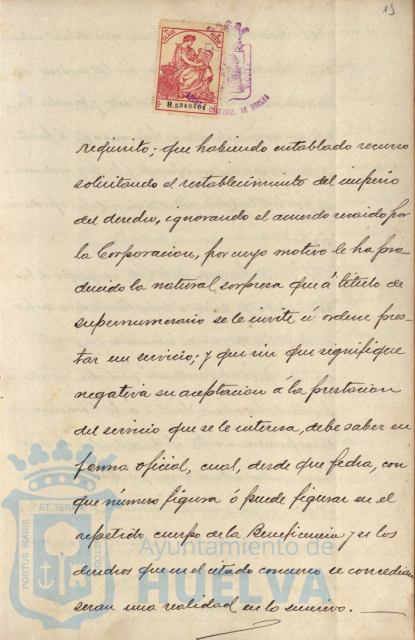 19
B.5248501
requisito; que habiendo entablado recurso
solicitando el restablecimiento del imperio
del derecho, ignorando el acuerdo recaido por
la Corporacion, por cuyo motivo le ha pro-
ducido la natural sorpresa que á titulo de
supernumerario se le invite ú ordene pres-
tar un servicio; y que sin que signifique
negativa su aceptacion a la prestacion
del servicio que se le interesa, debe saber en
forma oficial, cual, desde que fecha, con
que número figura ó puede figurar en el
repetido cuerpo de la Beneficencia y si los
derechos que en el citado concurso se concedian
seran una realidad en lo sucesivo.
PORTUS MARIS ET TERRAE CUSTODIA
Ayuntamiento de
HUELVA